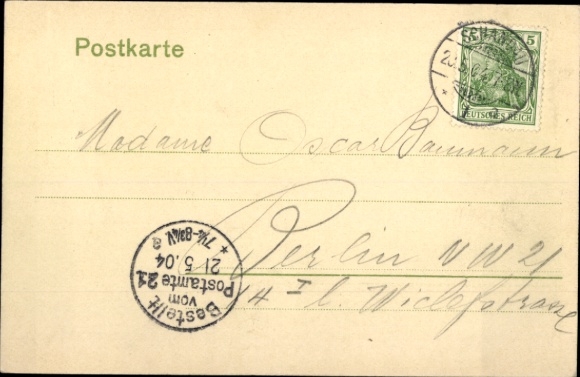 Postkarte
5
SCHANDAU
DEUTSCHES REICH
Madame Oscar Baumann
Berlin NW 21
14 I l. Wiclefstrasse
Bestellt
vom
Postamte 21
21 5.04
* 7½-8¾V. *